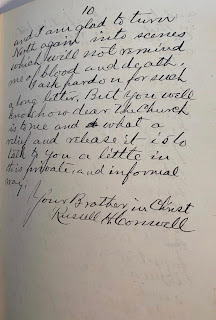 10
and I am glad to turn
North again into scenes
which will not remind
me of blood and death.
I ask pardon for such
a long letter. But you well
know how dear the Church
is to me and what a
relief and release it is to
talk to you a little in
this private, and informal
way,
Your Brother in Christ
Russell H. Conwell